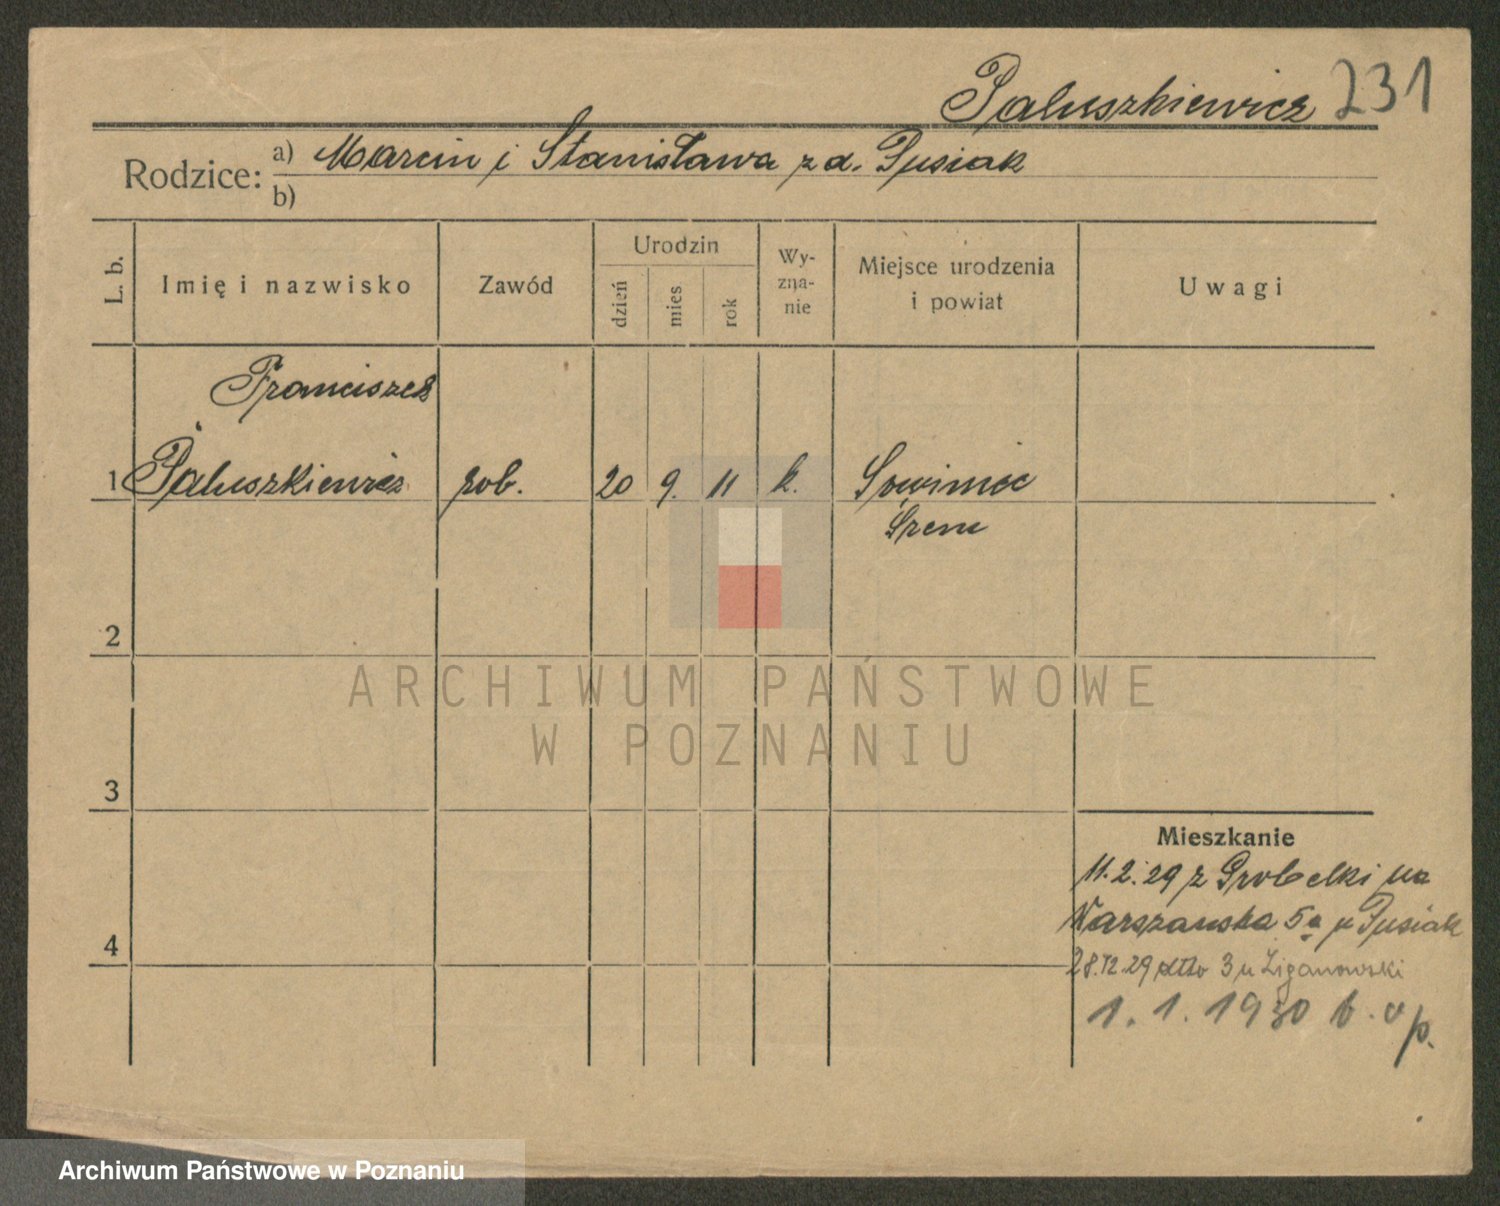 Paluszkiewicz 231
Rodzice: a) Marcin i Stanisława z d. Pusiak
b)
L. b.
Imię i nazwisko
Zawód
Urodzin
dzień
mies
rok
Wy-
zna-
nie
Miejsce urodzenia
i powiat
Uwagi
Franciszek
1 Paluszkiewicz rob. 20 9. 11 k. Sowiniec
Śrem
2
ARCHIWUM PAŃSTWOWE
W POZNANIU
3
Mieszkanie
11.2.29 z Grobelki na
Warszawska 5a u Pusiak
4
28.12.29 dtto 3 u Ziganowski
1.1.1930
Archiwum Państwowe w Poznaniu